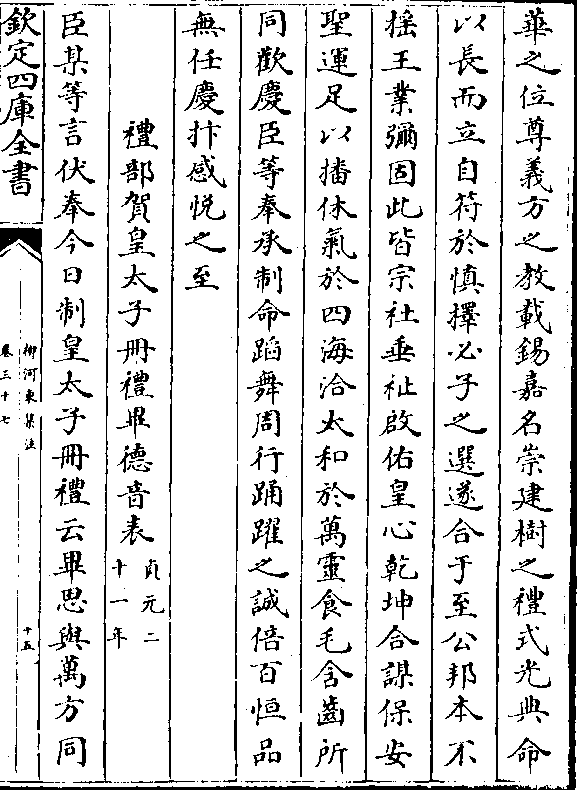 華之位尊義方之教載錫嘉名崇建樹之禮式光典命
以長而立自符於慎擇必子之選遂合于至公邦本不
揺王業彌固此皆宗社垂祉啟佑皇心乾坤合謀保安
聖運足以播休氣於四海洽太和於萬靈食毛含齒所
同歡慶臣等奉承制命蹈舞周行踊躍之誠倍百恒品
無任慶抃感悦之至
禮部賀皇太子冊禮畢德音表貞元二十一年
臣某等言伏奉今日制皇太子冊禮云畢思與萬方同
欽定四庫全書
栁河東集注
卷三十七
十五